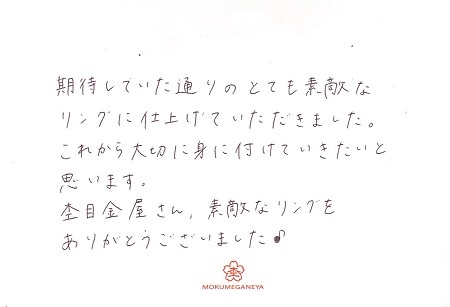 期待していた通りのとても素敵な
リングに仕上げていただきました。
これから大切に身に付けていきたいと
思います。
杢目金屋さん、素敵なリングを
ありがとうございました♪
杢
MOKUMEGANEYA